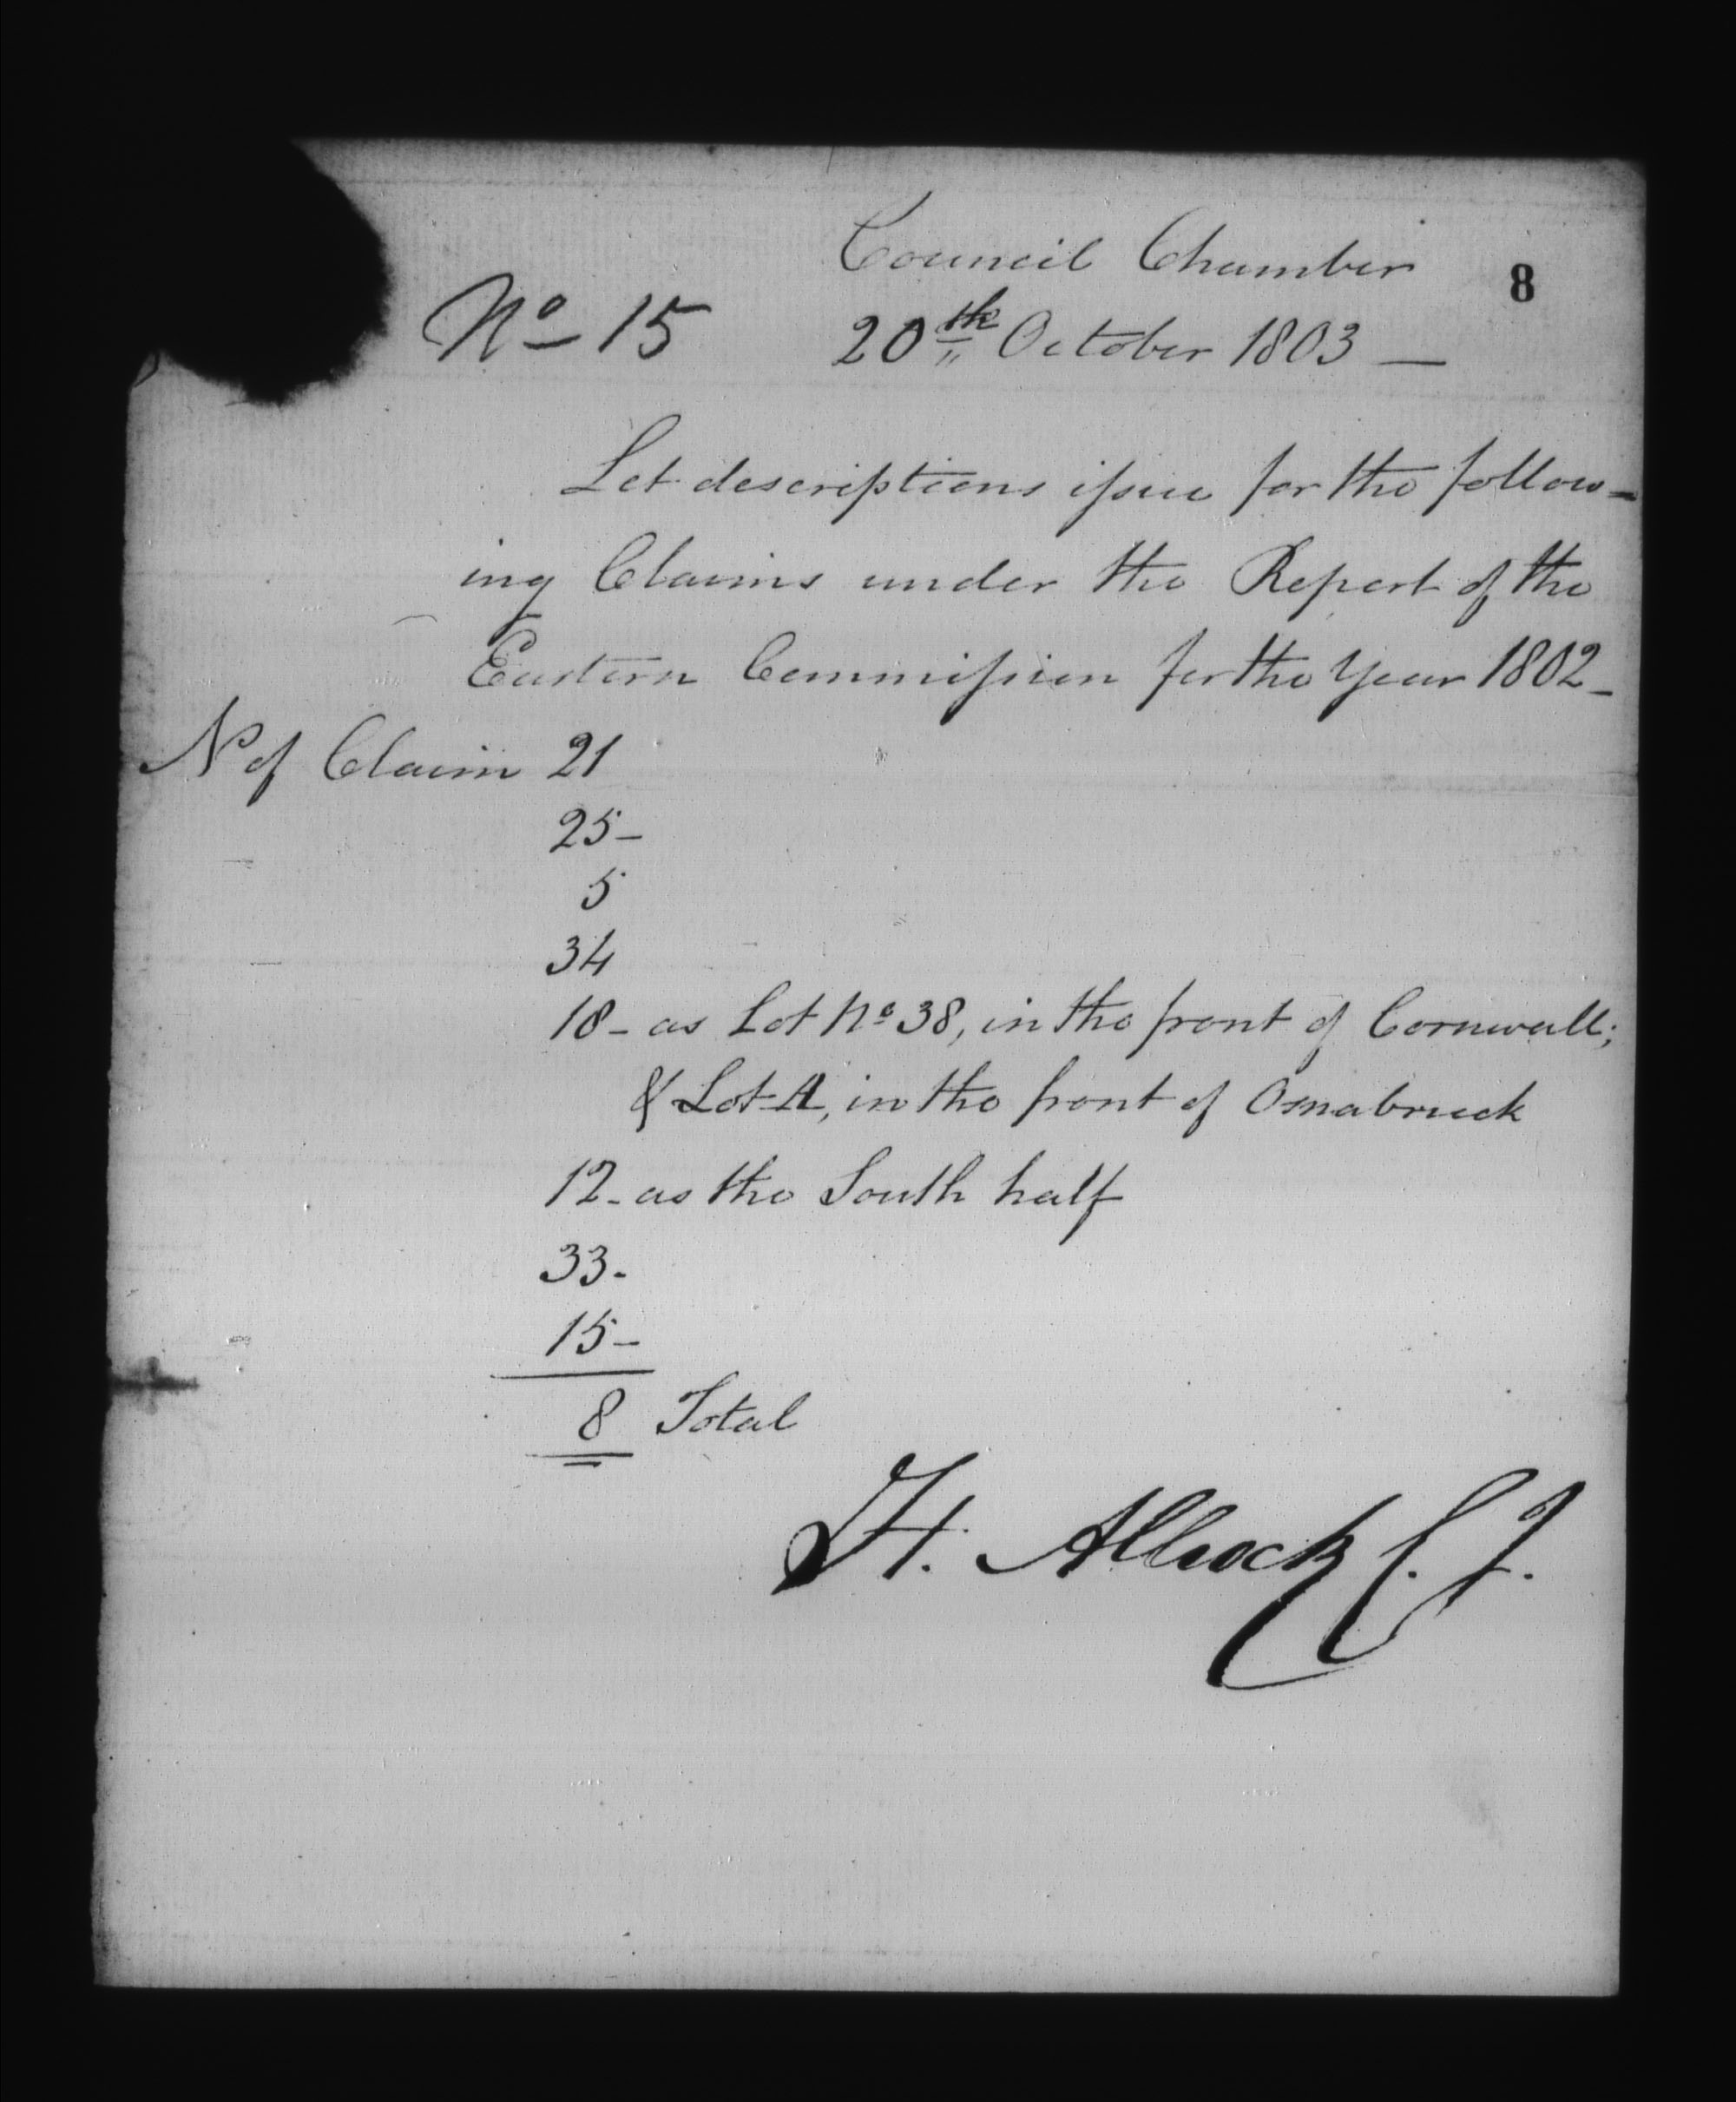 Council Chamber
8
No 15
20th October 1803 —
Let descriptions issue for the follow=
ing Claims under the Report of the
Eastern Commission for the Year 1802_
No of Claim 21
25_
5
34
18_ as Lot No 38, in the front of Cornwall;
& Lot A, in the front of Osnabruck
12_ as the South half
33.
15_
8 Total
H. Allcock C. J.